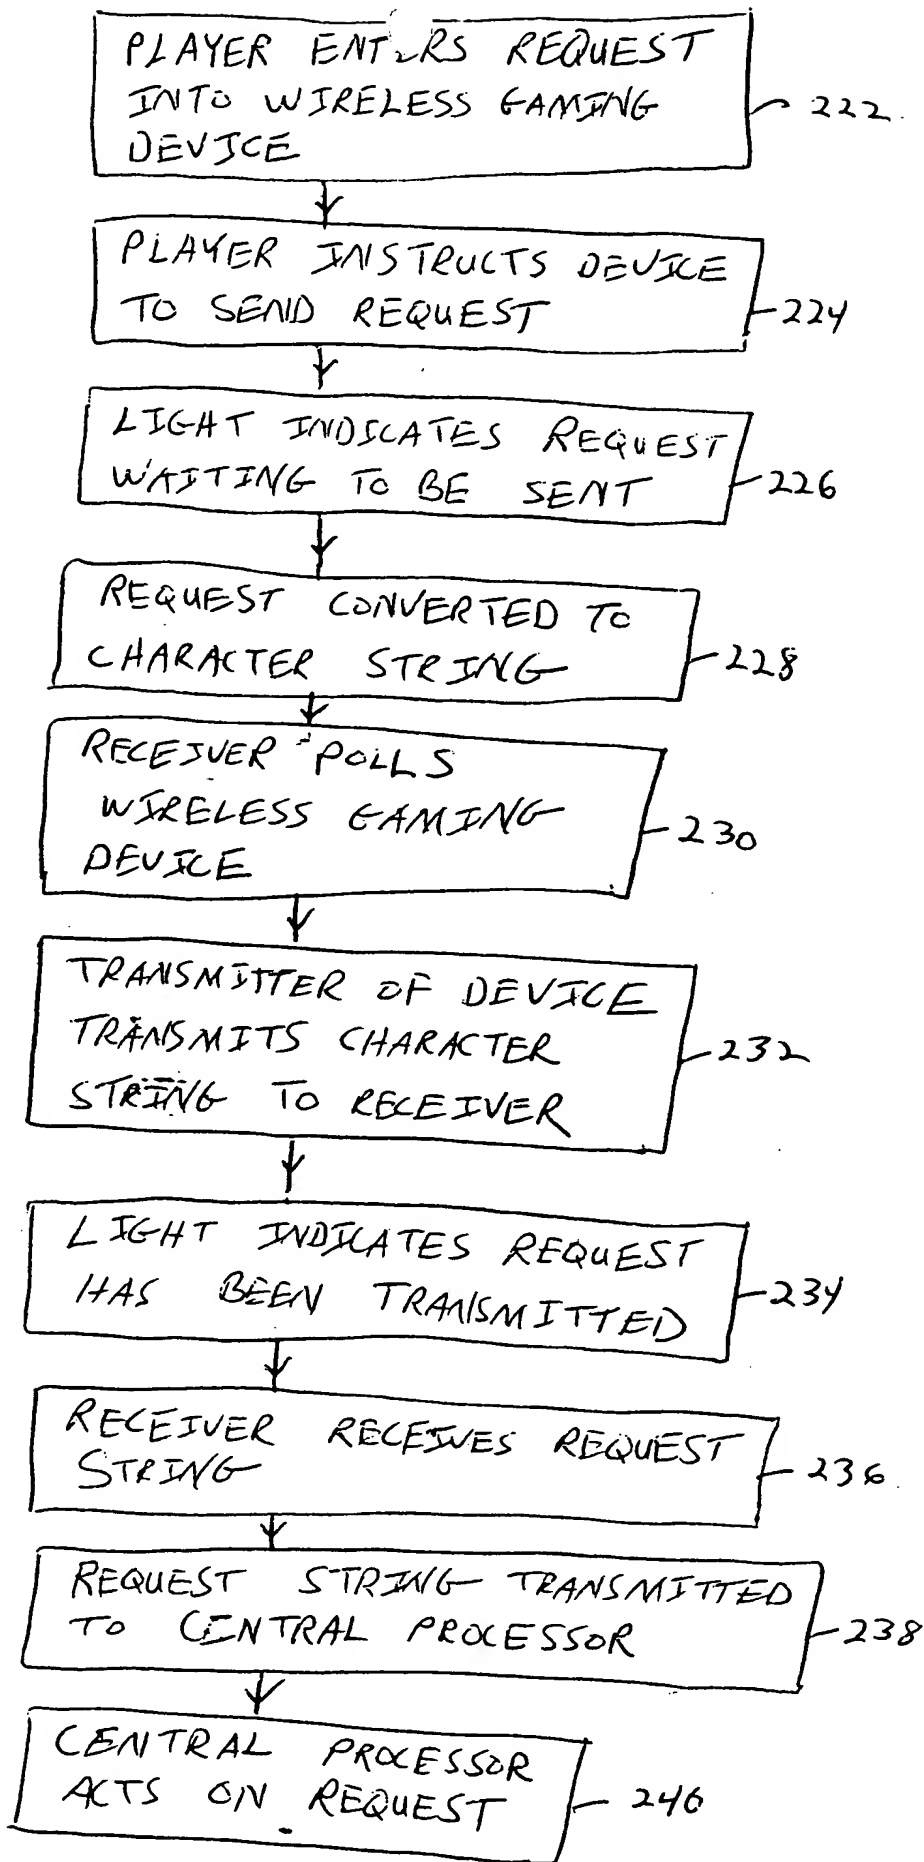 PLAYER ENTERS REQUEST
INTO WIRELESS GAMING
DEVICE
222
PLAYER INSTRUCTS DEVICE
TO SEND REQUEST
224
LIGHT INDICATES REQUEST
WAITING TO BE SENT
226
REQUEST CONVERTED TO
CHARACTER STRING
228
RECEIVER POLLS
WIRELESS GAMING
DEVICE
230
TRANSMITTER OF DEVICE
TRANSMITS CHARACTER
STRING TO RECEIVER
232
LIGHT INDICATES REQUEST
HAS BEEN TRANSMITTED
234
RECEIVER RECEIVES REQUEST
STRING
236
REQUEST STRING TRANSMITTED
TO CENTRAL PROCESSOR
238
CENTRAL PROCESSOR
ACTS ON REQUEST
240